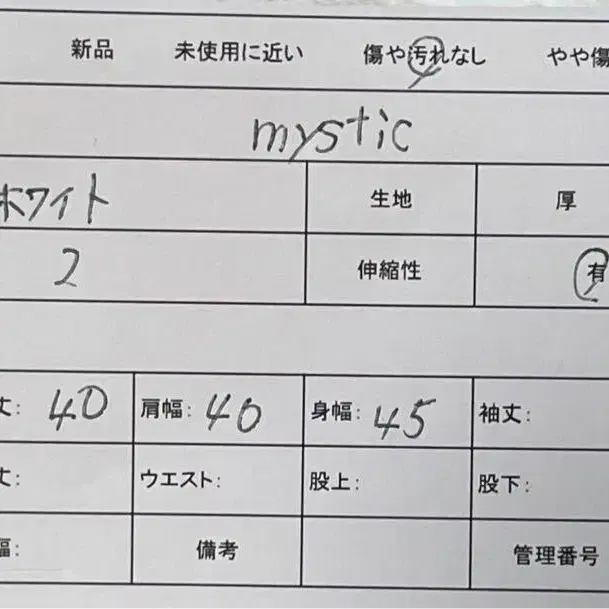 新品 未使用に近い 傷や汚れなし やや傷
mystic
ホワイト 生地 厚
2 伸縮性 有
丈: 40 肩幅: 40 身幅: 45 袖丈:
丈: ウエスト: 股上: 股下:
幅: 備考 管理番号